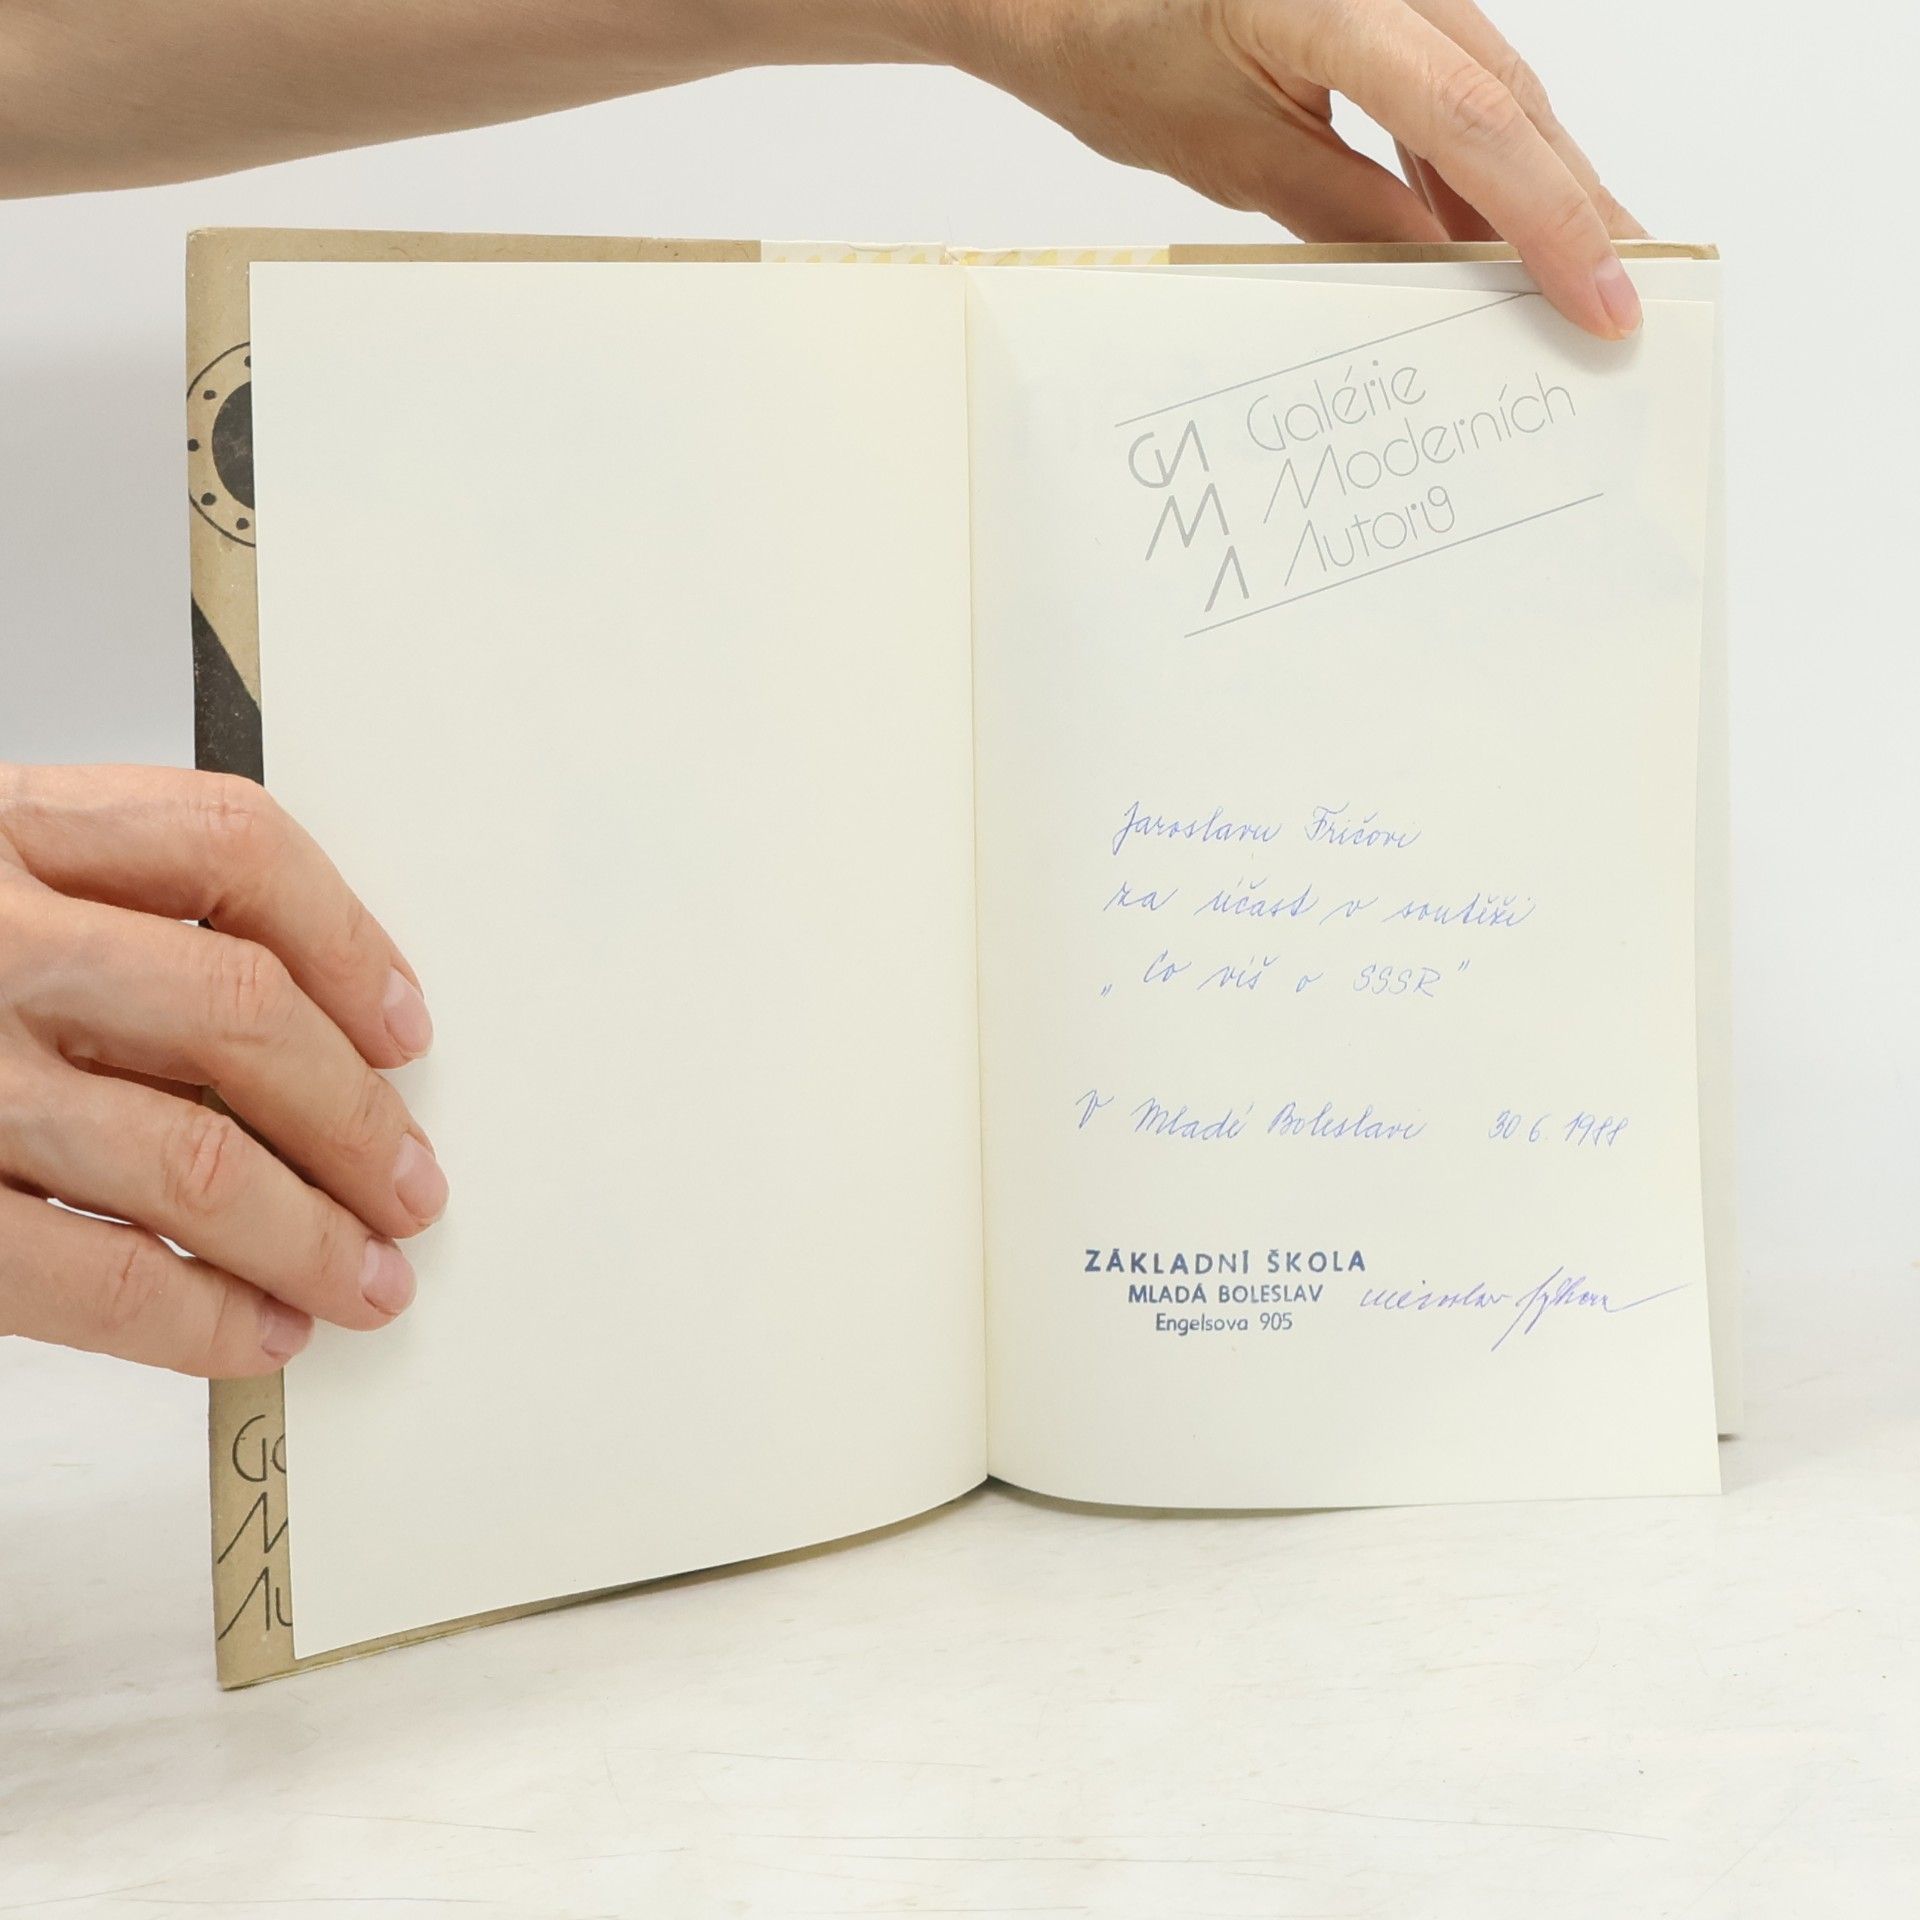 GMA
Galérie
Moderních
Autorů
Jaroslavu Fričovi
za účast v soutěži
„Co víš o SSSR"
V Mladé Boleslavi 30 6. 1988
ZÁKLADNÍ ŠKOLA
MLADÁ BOLESLAV
Engelsova 905
Miroslav